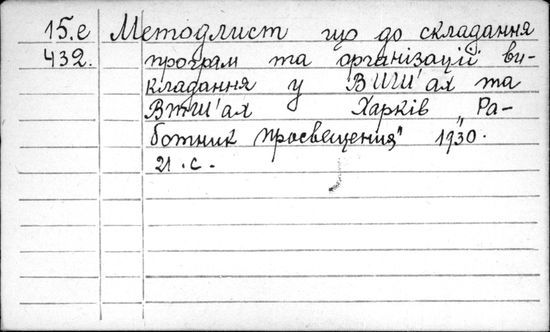 15.е Методлист що до складання
432. програм та організацій ви-
кладання у ВИШ'ах та
ВТИШ'ах Харків „Ра-
ботник просвещения" 1930.
21.с.